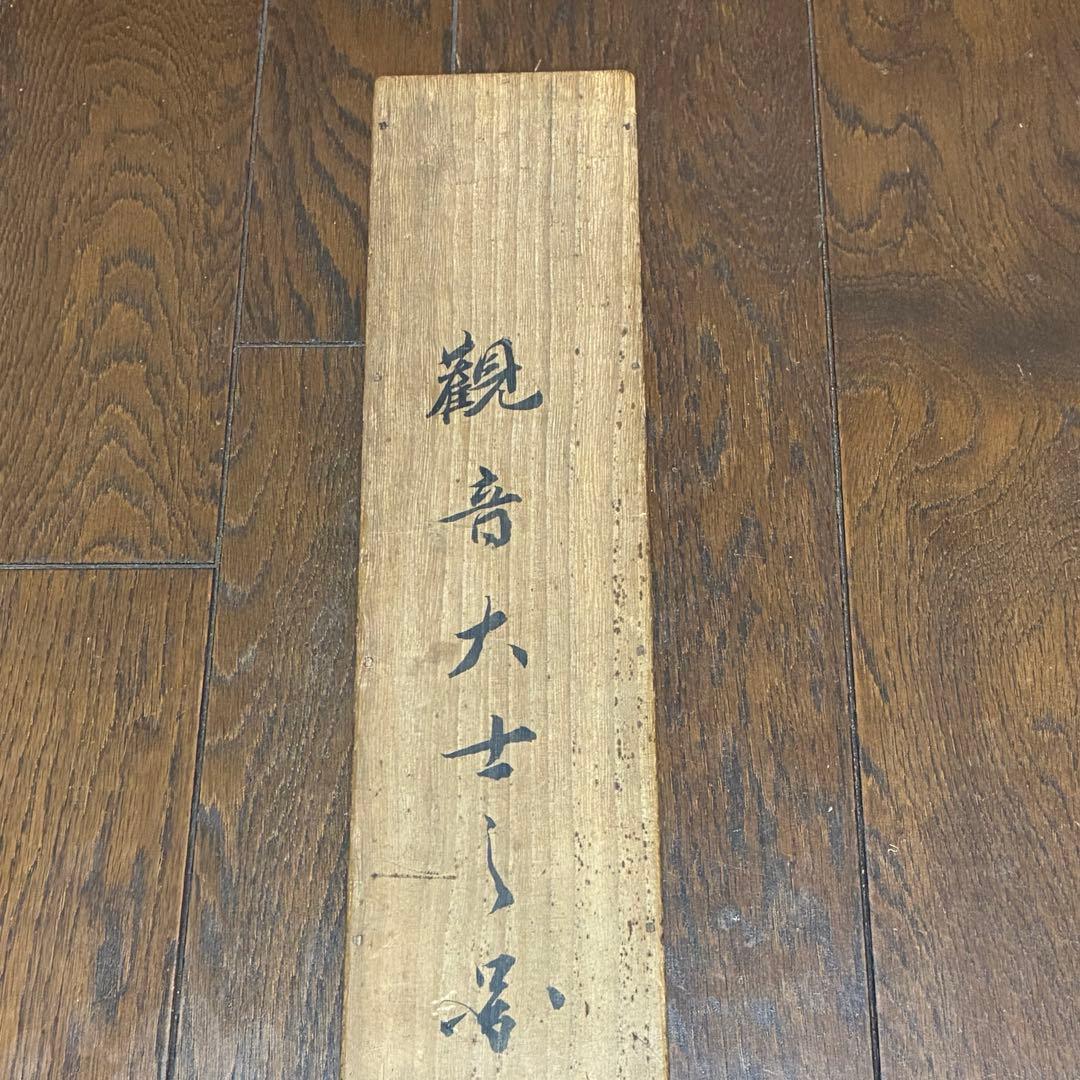 觀音大士之圖